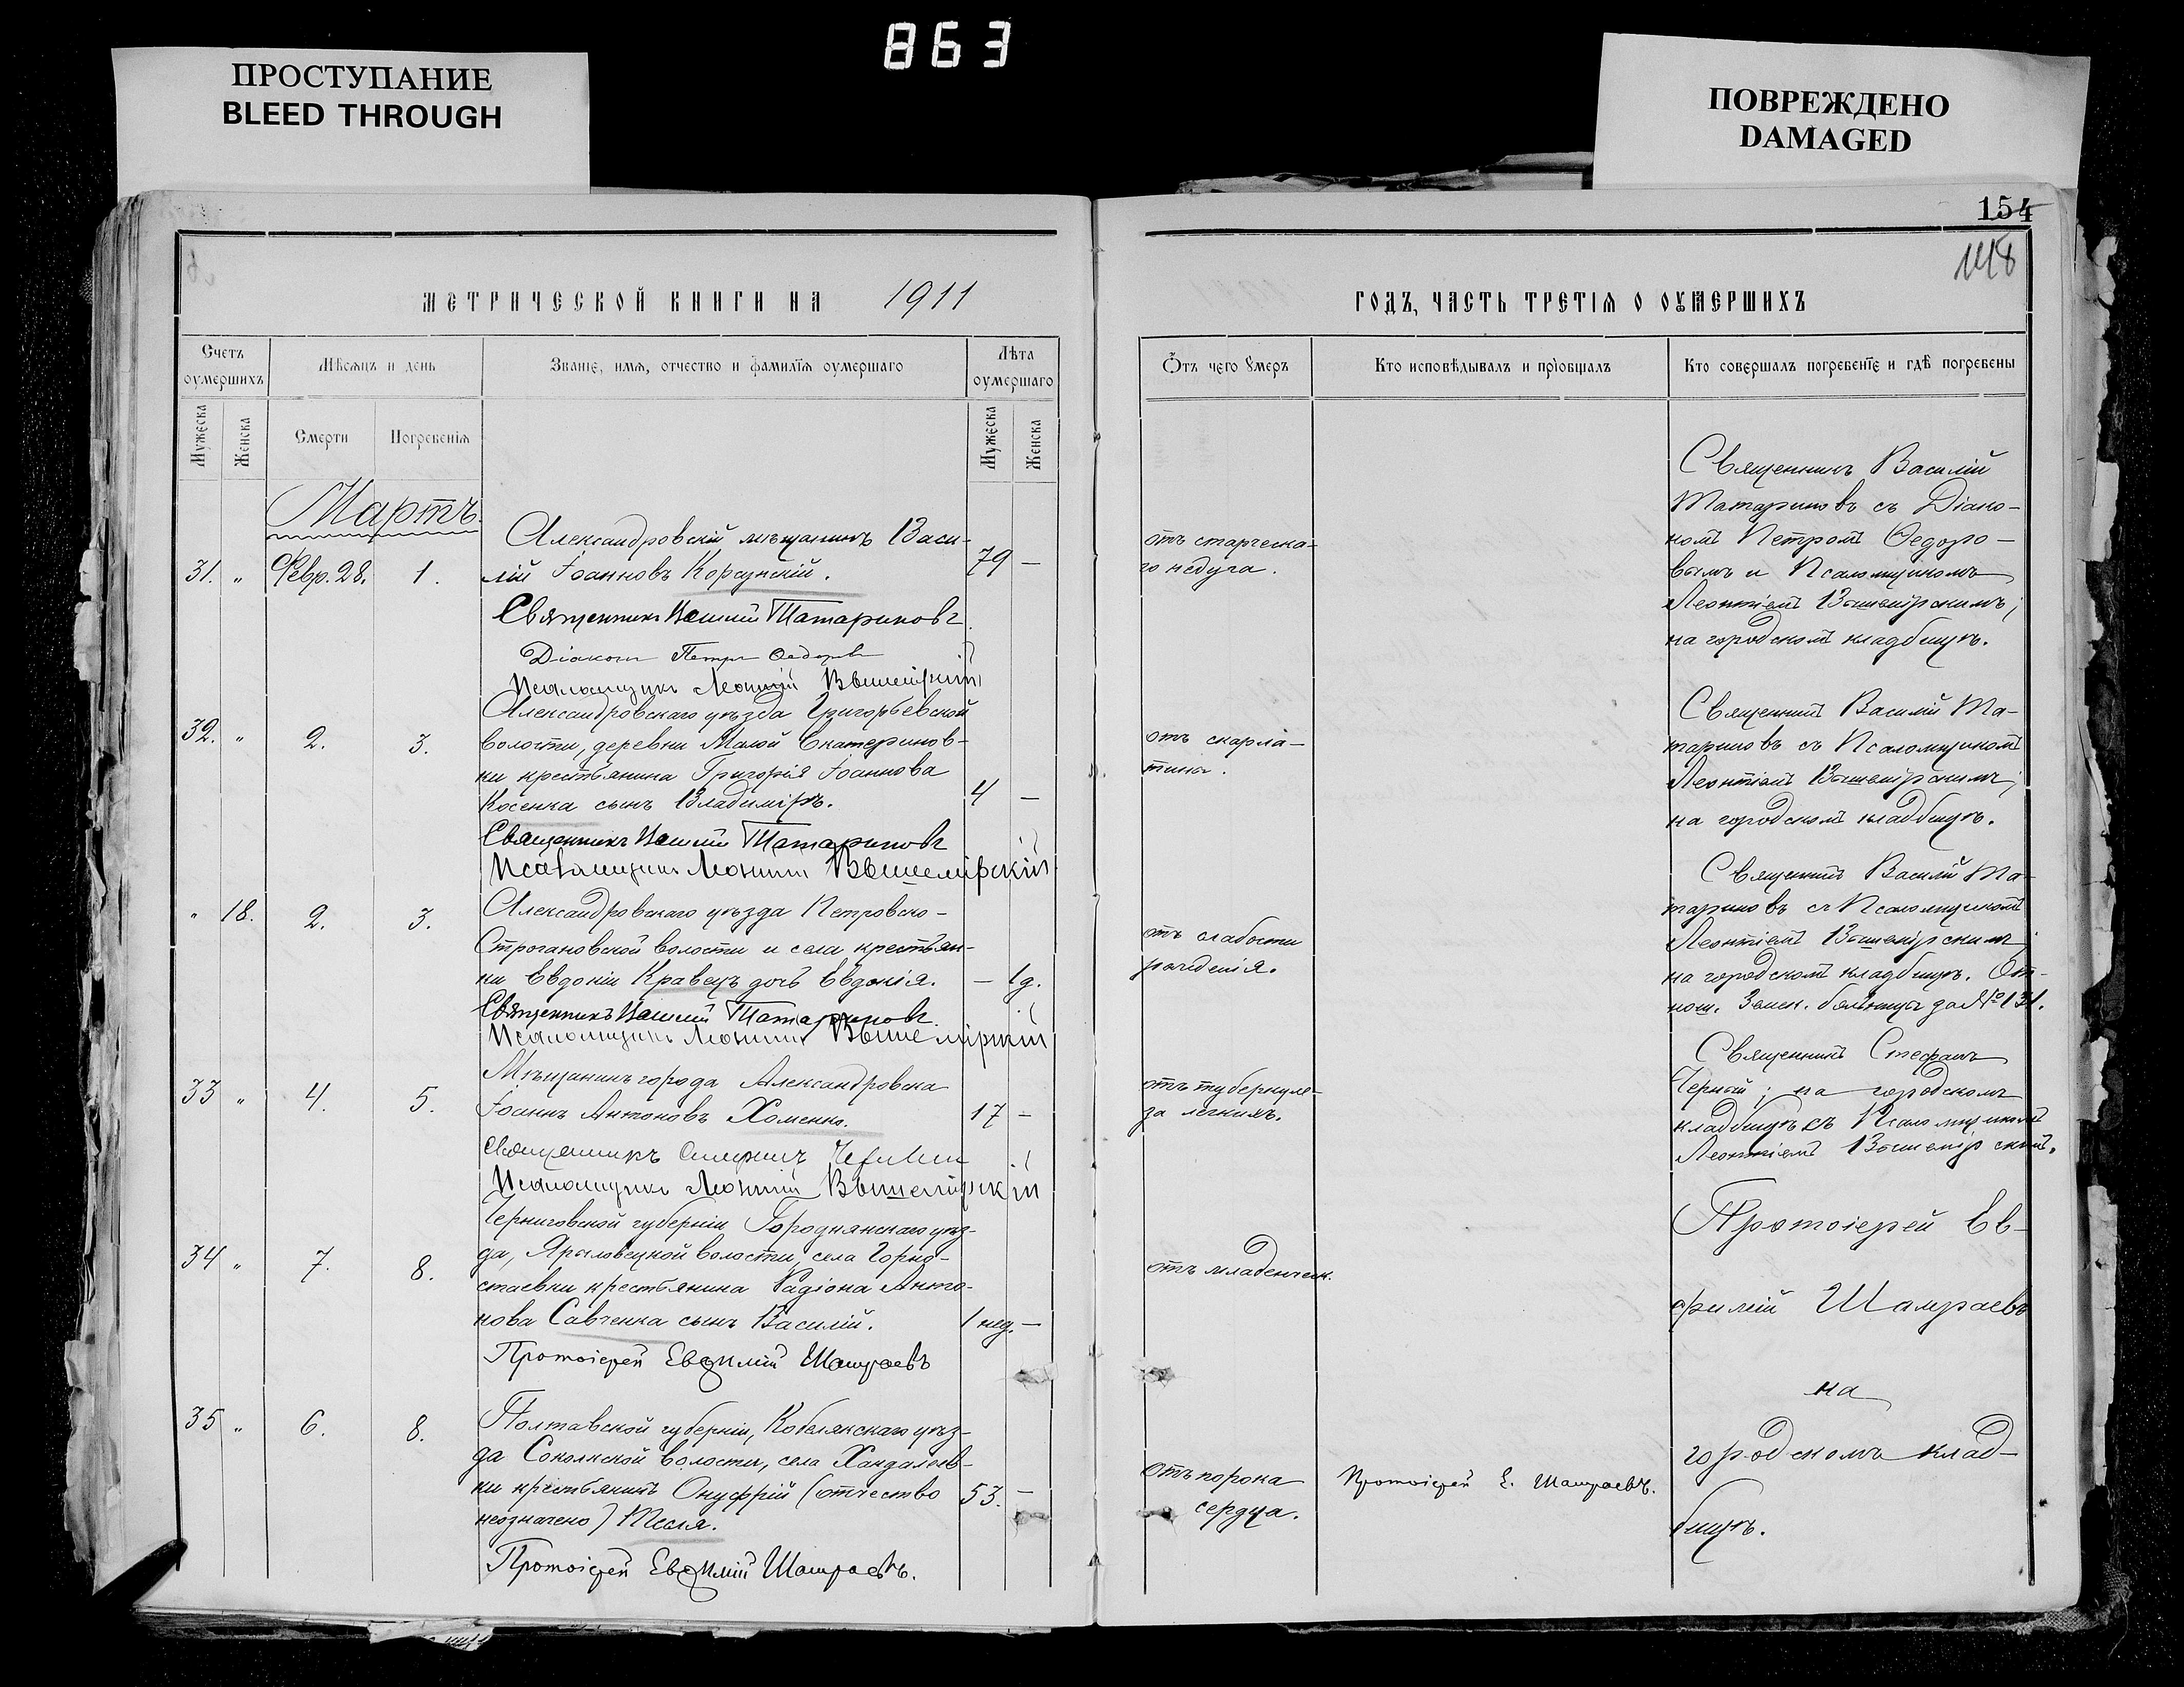 863
ПРОСТУПАНИЕ
BLEED THROUGH
ПОВРЕЖДЕНО
DAMAGED
154
148
МЕТРИЧЕСКОЙ КНИГИ НА 1911
Счетъ оумершихъ
Мѣсяцъ и день
Званіе, имя, отчество и фамилія оумершаго
Лѣта оумершаго
Мужеска
Женска
Смерти
Погребенія
Мужеска
Женска
Мартъ.
Александровскій мѣщанинъ Васи-
31. " Февр. 28. 1. лій Іоанновъ Корсунскій. 79 —
Священникъ Василій Татариновъ
Діаконъ Петръ Федоровъ
Псаломщикъ Леонтій Вышемірскій
Александровскаго уѣзда Григорьевской
32. " 2. 3. волости, деревни Малой Екатеринов-
ки крестьянина Григорія Іоаннова
Косенка сынъ Владиміръ. 4 —
Священникъ Василій Татариновъ
Псаломщикъ Леонтій Вышемірскій
" 18. 2. 3. Александровскаго уѣзда Петровско-
Строгановской волости и села крестьян-
ки Евдокіи Кравецъ дочь Евдокія. — 1 д.
Священникъ Василій Татариновъ
Псаломщикъ Леонтій Вышемірскій
Мѣщанинъ города Александровска
33 " 4. 5. Іоаннъ Антоновъ Хоменко. 17 —
Священникъ Стефанъ Черный
Псаломщикъ Леонтій Вышемірскій
Черниговской губерніи Городнянскаго уѣз-
34 " 7. 8. да, Ярыловецкой волости, села Горно-
стаевки крестьянина Радіона Анто-
нова Савченка сынъ Василій. 1 нед. —
Протоіерей Евфимій Шамраевъ
35 " 6. 8. Полтавской губерніи, Кобелякскаго уѣз-
да Соколкской волости, села Хандалеев-
ки крестьянинъ Онуфрій (отчество 53. —
неозначено) Тесля.
Протоіерей Евфимій Шамраевъ.
ГОДЪ, ЧАСТЬ ТРЕТІЯ О ОУМЕРШИХЪ
Отъ чего умеръ
Кто исповѣдывалъ и пріобщалъ
Кто совершалъ погребеніе и гдѣ погребены
Священникъ Василій
Татариновъ съ Діако-
отъ старческа- номъ Петромъ Ѳедоро-
го недуга. вымъ и Псаломщикомъ
Леонтіемъ Вышемірскимъ;
на городскомъ кладбищѣ.
Священникъ Василій Та-
отъ скарла- тариновъ съ Псаломщикомъ
тины. Леонтіемъ Вышемірскимъ;
на городскомъ кладбищѣ.
Священникъ Василій Та-
тариновъ съ Псаломщикомъ
отъ слабости Леонтіемъ Вышемірскимъ;
рожденія. на городскомъ кладбищѣ. От-
нош. Земск. больницы за № 131.
Священникъ Стефанъ
отъ туберкуле- Черный; на городскомъ
за легкихъ. кладбищѣ съ Псаломщикомъ
Леонтіемъ Вышемірскимъ.
Протоіерей Ев-
отъ младенческ.
фимій Шамраевъ
на
городскомъ клад-
отъ порока Протоіерей Е. Шамраевъ.
сердца. бищѣ.